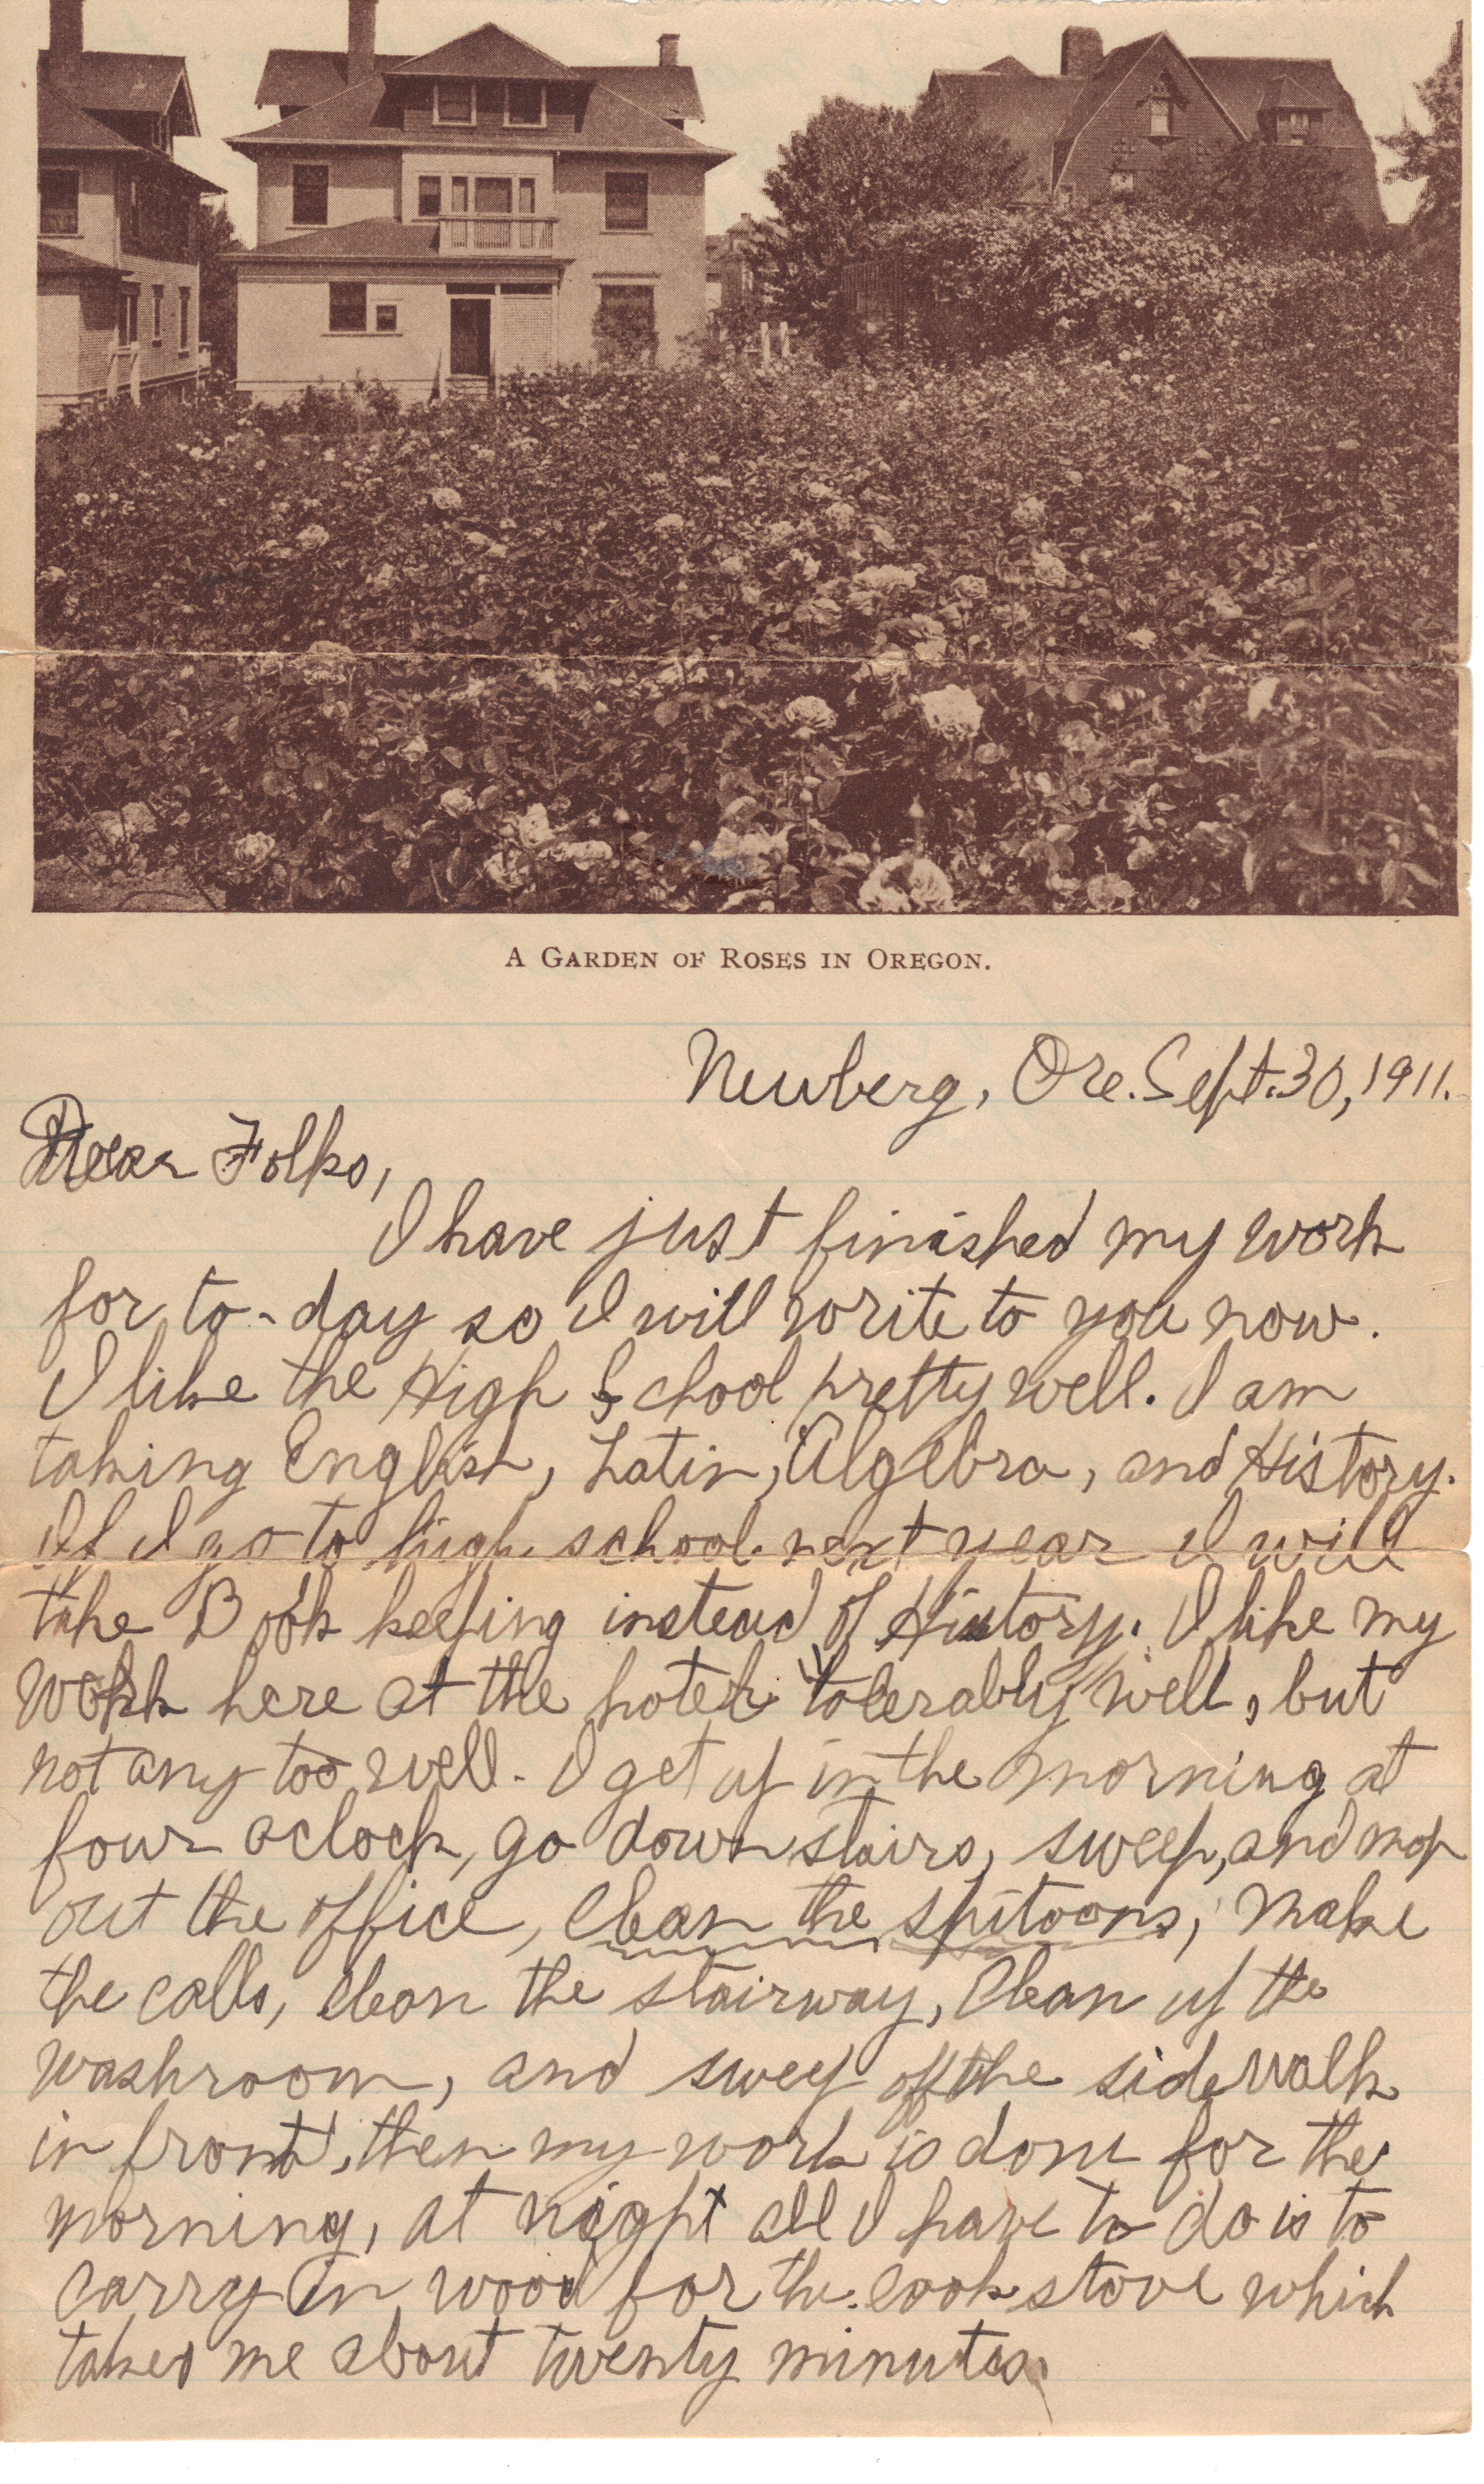 A GARDEN OF ROSES IN OREGON.
Newberg, Ore. Sept. 30, 1911.
Dear Folks,
I have just finished my work
for to-day so I will write to you now.
I like the High School pretty well. I am
taking English, Latin, Algebra, and History.
If I go to high school next year I will
take Book keeping instead of History. I like my
work here at the hotel tolerably well, but
not any too well. I get up in the morning at
four oclock, go down stairs, sweep, and mop
out the office, clean the spitoons, make
the calls, clean the stairway, clean up the
washroom, and sweep off the sidewalk
in front, then my work is done for the
morning, at night all I have to do is to
carry in wood for the cook stove which
takes me about twenty minutes.